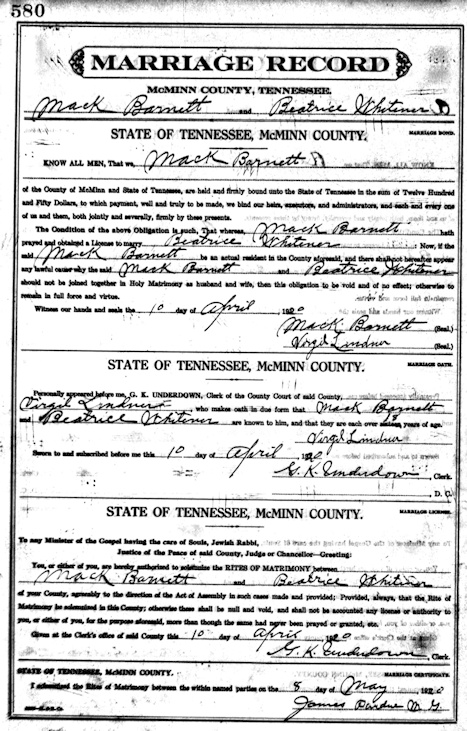 580
MARRIAGE RECORD
McMINN COUNTY, TENNESSEE.
Mack Barnett and Beatrice Whitener
STATE OF TENNESSEE, McMINN COUNTY. MARRIAGE BOND.
KNOW ALL MEN, That we, Mack Barnett
of the County of McMinn and State of Tennessee, are held and firmly bound unto the State of Tennessee in the sum of Twelve Hundred
and Fifty Dollars, to which payment, well and truly to be made, we bind our heirs, executors, and administrators, and each and every one
of us and them, both jointly and severally, firmly by these presents.
The Condition of the above Obligation is such, That whereas, Mack Barnett hath
prayed and obtained a License to marry Beatrice Whitener ; Now, if the
said Mack Barnett be an actual resident in the County aforesaid, and there shall not hereafter appear
any lawful cause why the said Mack Barnett and Beatrice Whitener
should not be joined together in Holy Matrimony as husband and wife, then this obligation to be void and of no effect; otherwise to
remain in full force and virtue.
Witness our hands and seals the 10 day of April 1920
Mack Barnett (Seal.)
Virgil Lindner (Seal.)
STATE OF TENNESSEE, McMINN COUNTY. MARRIAGE OATH.
Personally appeared before me, G. K. UNDERDOWN, Clerk of the County Court of said County,
Virgil Lindner who makes oath in due form that Mack Barnett
and Beatrice Whitener are known to him, and that they are each over years of age.
Virgil Lindner
Sworn to and subscribed before me this 10 day of April 1920
G. K. Underdown, Clerk.
D. C.
STATE OF TENNESSEE, McMINN COUNTY. MARRIAGE LICENSE.
To any Minister of the Gospel having the care of Souls, Jewish Rabbi,
Justice of the Peace of said County, Judge or Chancellor—Greeting:
You, or either of you, are hereby authorized to solemnize the RITES OF MATRIMONY between
Mack Barnett and Beatrice Whitener
of your County, agreeably to the direction of the Act of Assembly in such cases made and provided; Provided, always, that the Rite of
Matrimony be solemnized in this County; otherwise these shall be null and void, and shall not be accounted any license or authority to
you, or either of you, for the purpose aforesaid, more than though the same had never been prayed or granted, etc.
Given at the Clerk's office of said County this 10 day of April 1920
G. K. Underdown, Clerk.
STATE OF TENNESSEE, McMINN COUNTY. MARRIAGE CERTIFICATE.
I solemnized the Rites of Matrimony between the within named parties on the 8 day of May 1920
James Pardue M. G.